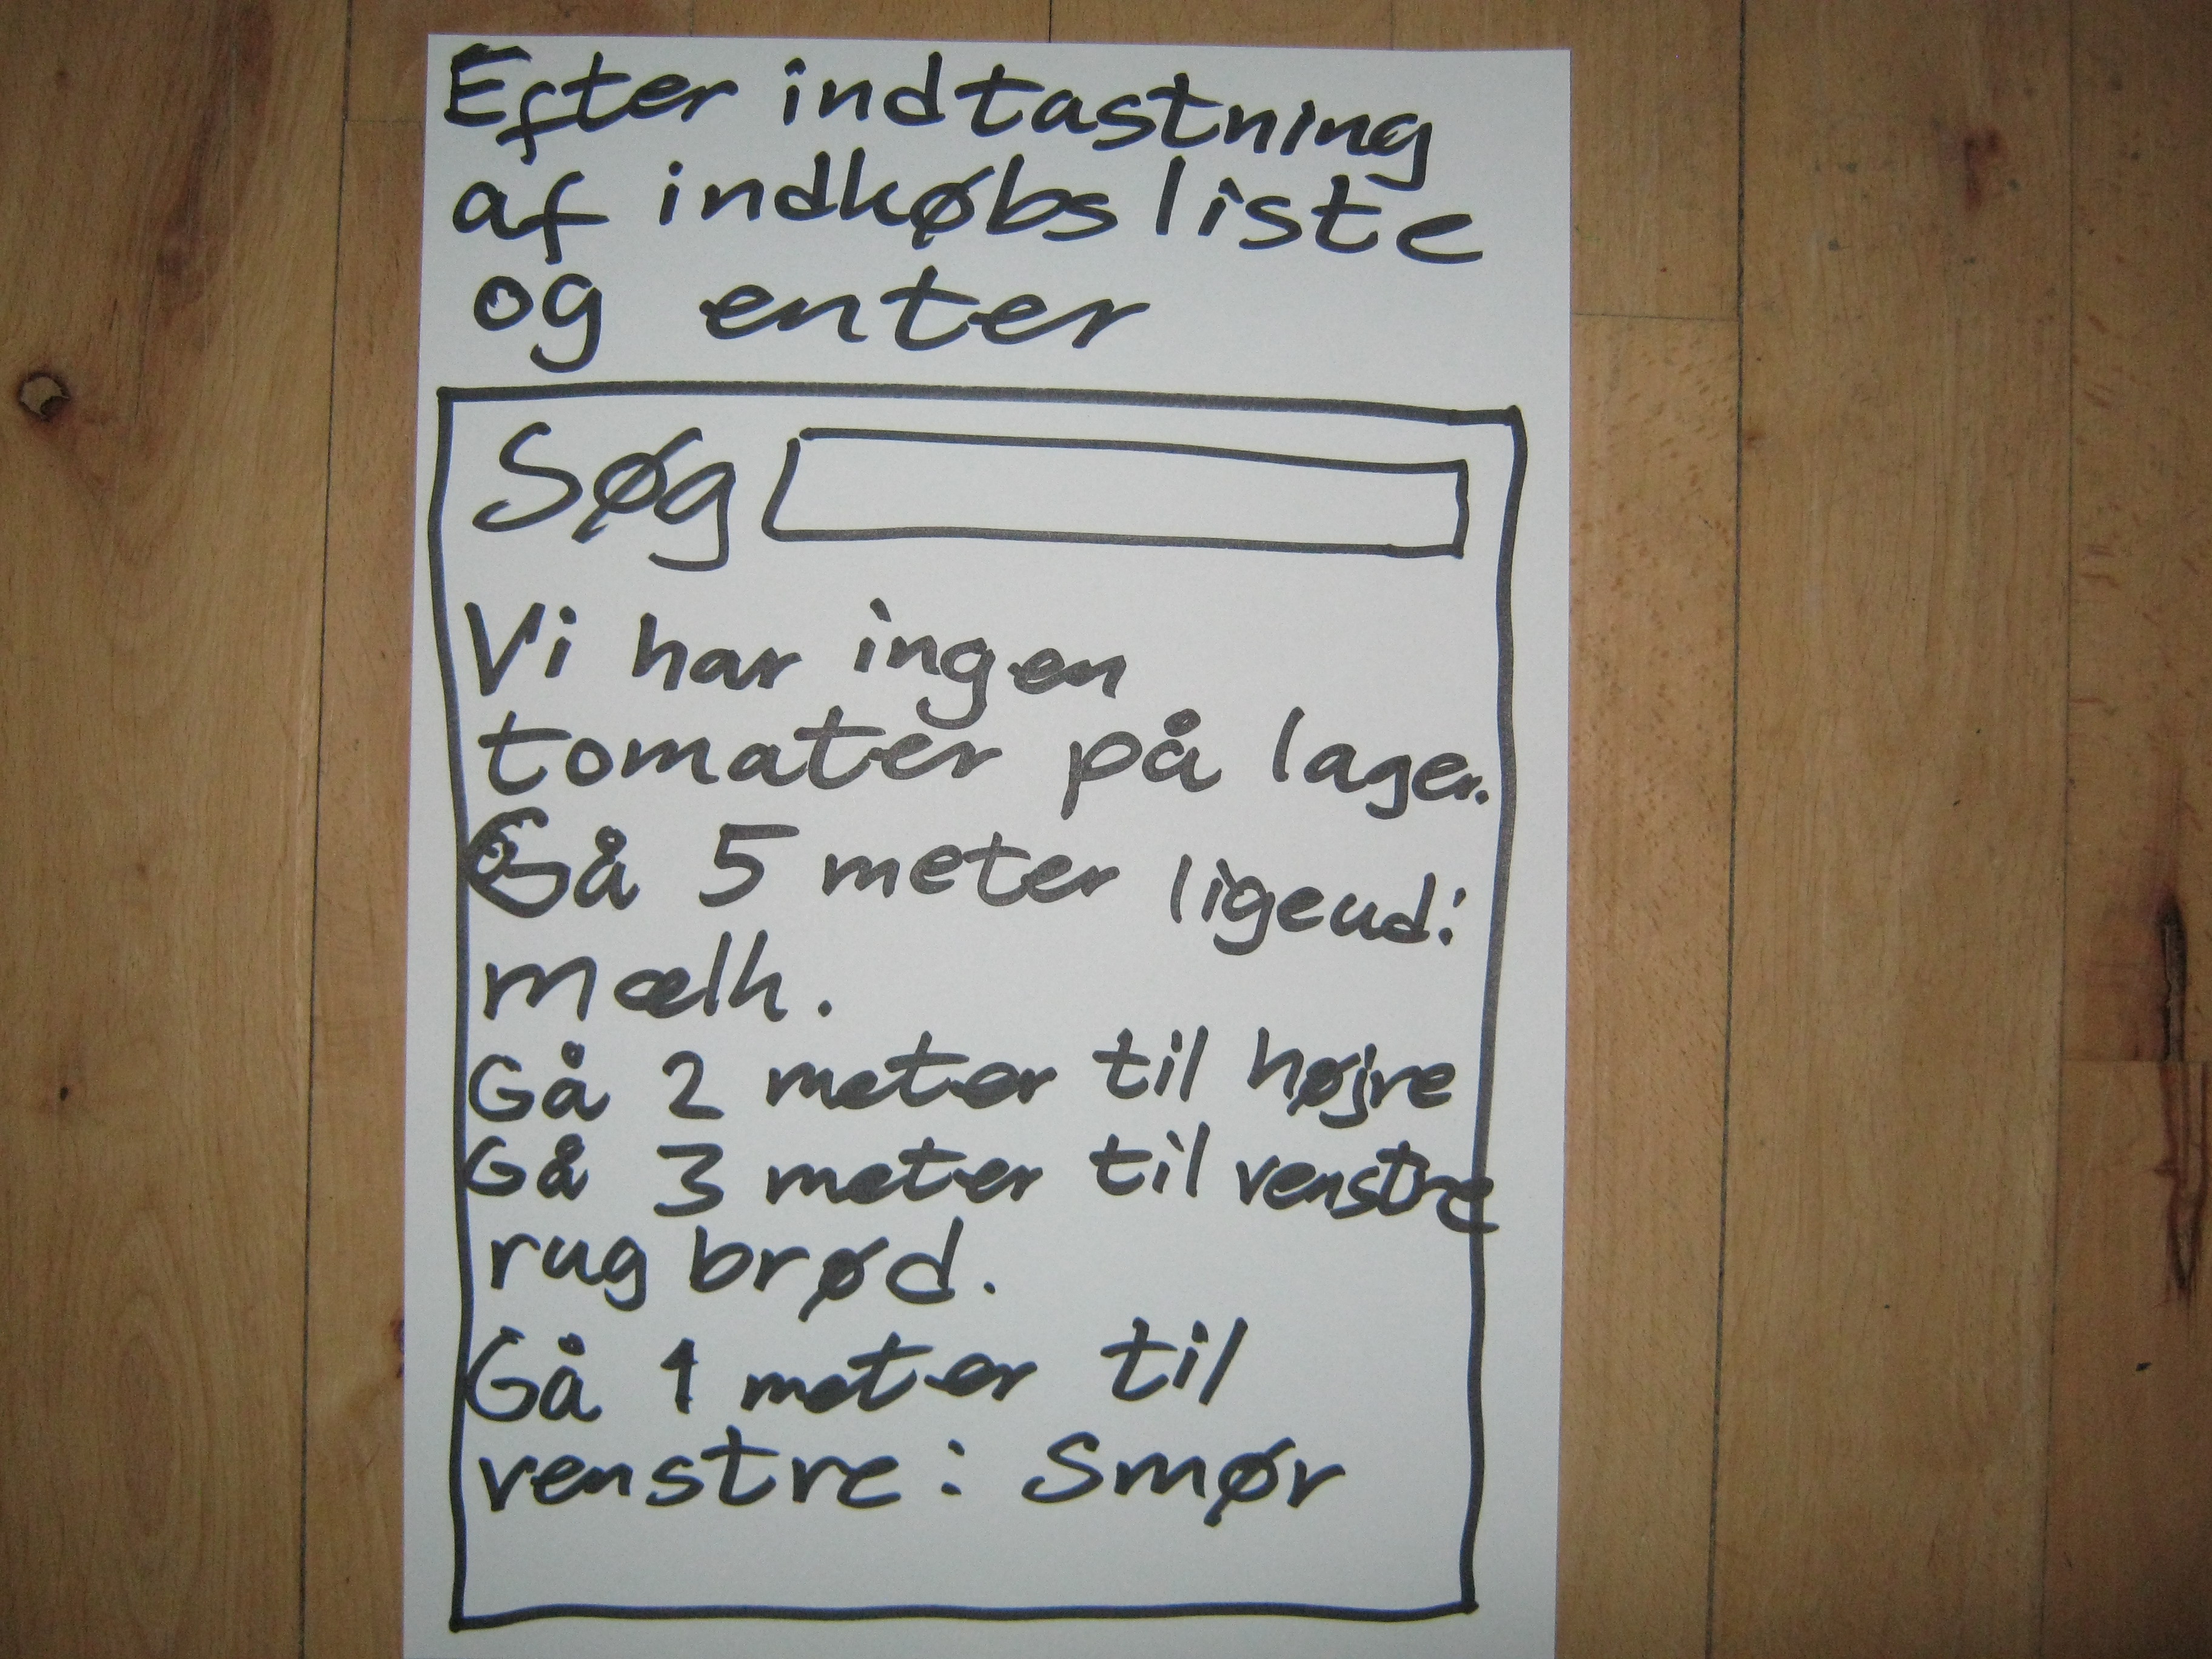 Efter indtastning
af indkøbsliste
og enter
Søg
Vi har ingen
tomater på lager.
Gå 5 meter ligeud:
mælk.
Gå 2 meter til højre
Gå 3 meter til venstre
rugbrød.
Gå 1 meter til
venstre: Smør